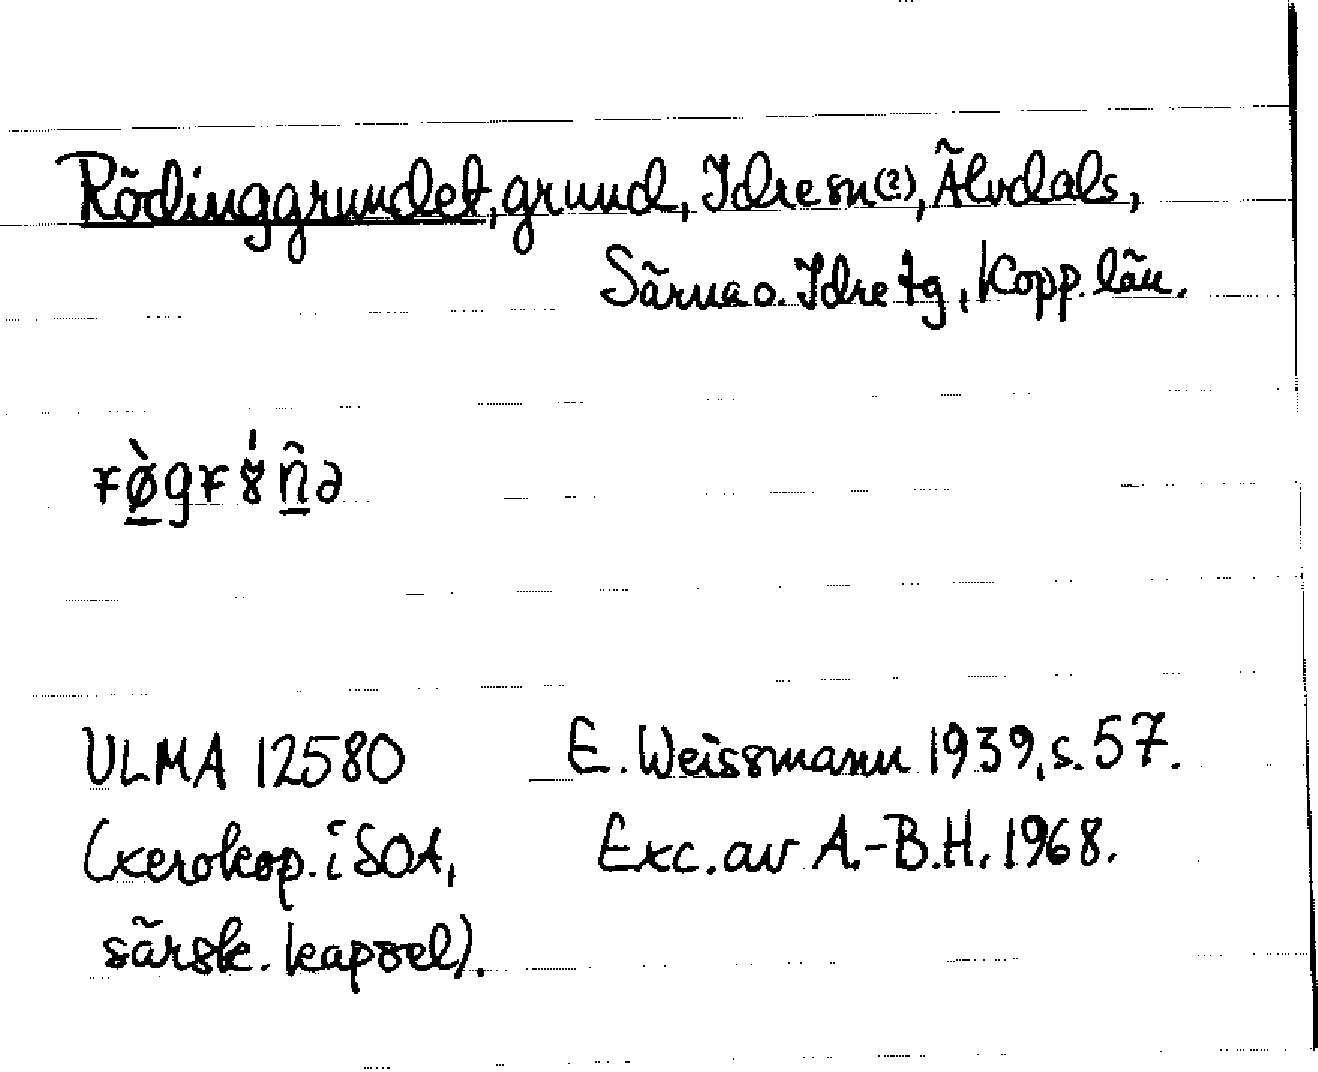 Rödinggrundet, grund, Idre sn(?), Älvdals,
Särna o. Idre tg, Kopp. län.
ULMA 12580 E. Weissmann 1939, s. 57.
(xerokop. i SOA, Exc. av A.-B.H. 1968.
särsk. kapsel).